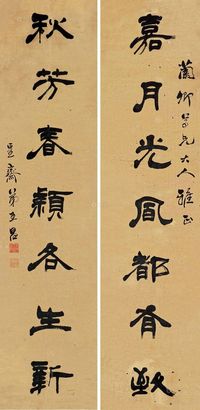 嘉月光風都有致
蘭卿尊兄大人雅正
秋芳春穎各生新
齋弟